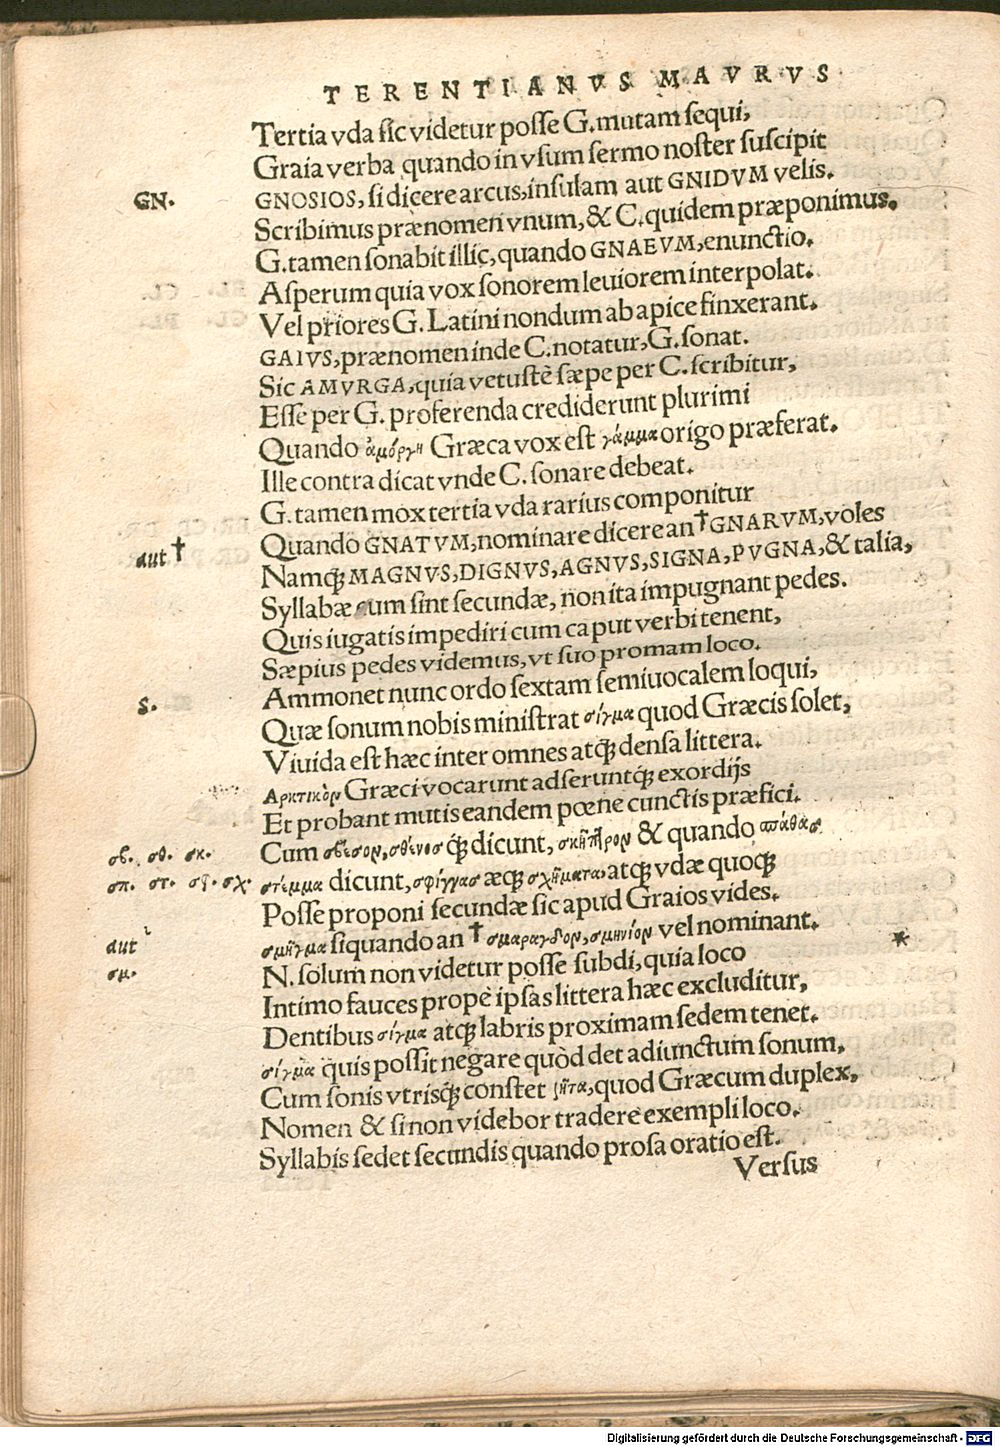 TERENTIANVS MAVRVS
Tertia vda sic videtur posse G.mutam sequi,
Graia verba quando in vsum sermo noster suscipit
GN. GNOSIOS, si dicere arcus, insulam aut GNIDVM velis.
Scribimus prænomen vnum, & C. quidem præponimus.
G. tamen sonabit illic, quando GNAEVM, enunctio.
Asperum quia vox sonorem leuiorem interpolat.
Vel priores G. Latini nondum ab apice finxerant.
GAIVS, prænomen inde C. notatur, G. sonat.
Sic AMVRGA, quia vetustē sæpe per C. scribitur,
Esse per G. proferenda crediderunt plurimi
Quando ἀμόργη Græca vox est γάμμα origo præferat.
Ille contra dicat vnde C. sonare debeat.
G. tamen mox tertia vda rarius componitur
aut † Quando GNATVM, nominare dicere an † GNARVM, voles
Namq; MAGNVS, DIGNVS, AGNVS, SIGNA, PVGNA, & talia,
Syllabæ cum sint secundæ, non ita impugnant pedes.
Quis iugatis impediri cum caput verbi tenent,
Sæpius pedes videmus, vt suo promam loco.
S. Ammonet nunc ordo sextam semiuocalem loqui,
Quæ sonum nobis ministrat σίγμα quod Græcis solet,
Viuida est hæc inter omnes atq; densa littera.
Αρκτικὸν Græci vocarunt adseruntq; exordijs
Et probant mutis eandem pœne cunctis præfici.
σβ. σθ. σκ. Cum σβέσον, σθένοσ q; dicunt, σκῆπτρον & quando σπάθασ
σπ. στ. σφ. σχ. στέμμα dicunt, σφίγγασ æq; σχήματα, atq; vdæ quoq;
Posse proponi secundæ sic apud Graios vides.
aut σμῆγμα siquando an † σμάραγδον, σμηνίον vel nominant. *
σμ. N. solum non videtur posse subdi, quia loco
Intimo fauces propè ipsas littera hæc excluditur,
Dentibus σίγμα atq; labris proximam sedem tenet.
σίγμα quis possit negare quòd det adiunctum sonum,
Cum sonis vtrisq; constet ζῆτα, quod Græcum duplex,
Nomen & si non videbor tradere exempli loco.
Syllabis sedet secundis quando prosa oratio est.
Versus
Digitalisierung gefördert durch die Deutsche Forschungsgemeinschaft - DFG